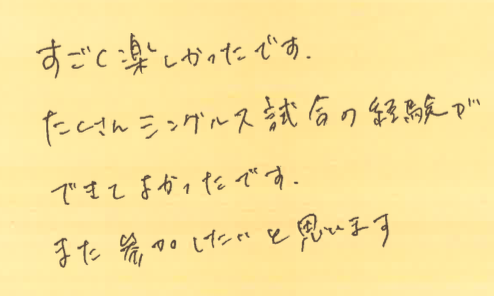 すごく楽しかったです.
たくさんシングルス試合の経験が
できてよかったです.
また参加したいと思います